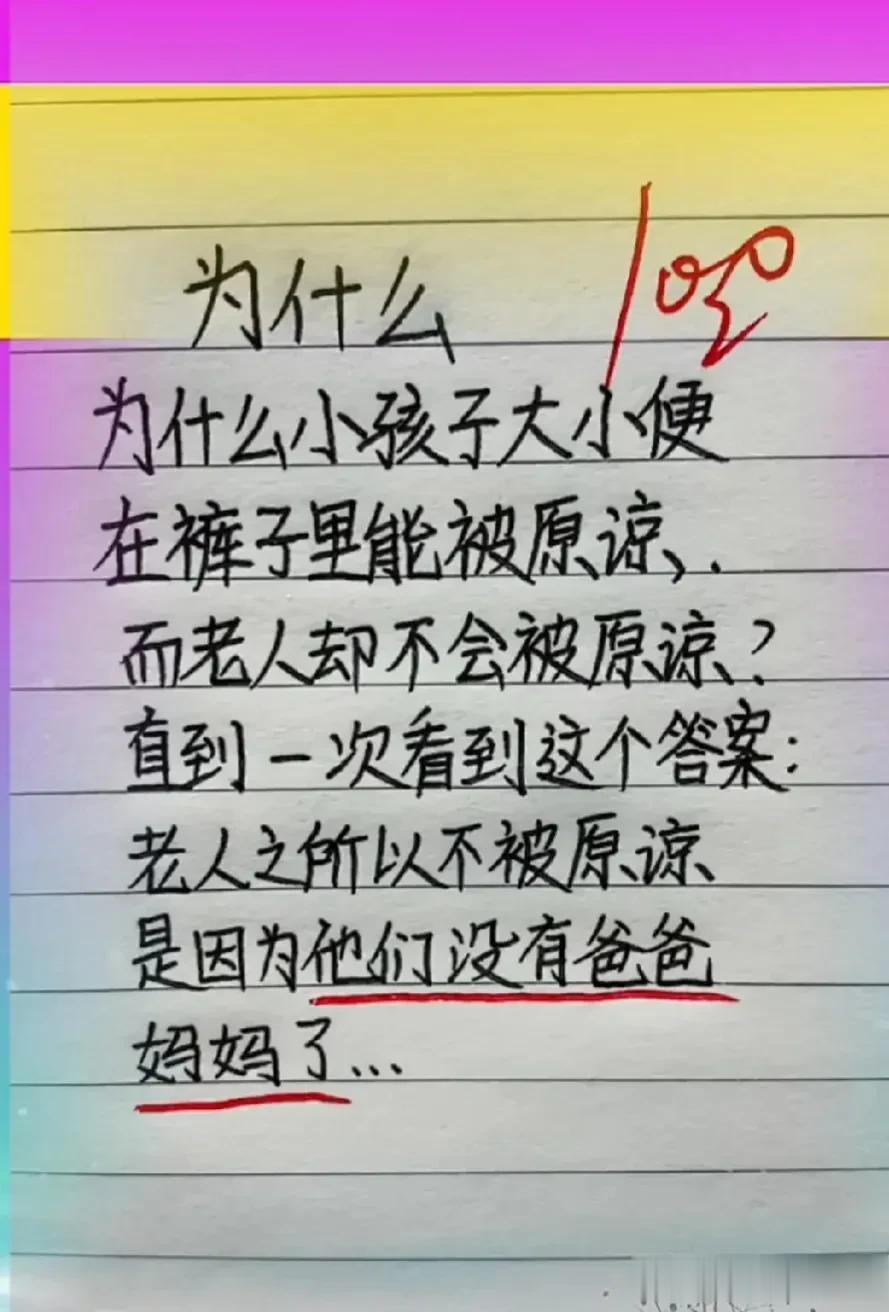 为什么
100
为什么小孩子大小便
在裤子里能被原谅,.
而老人却不会被原谅?
直到一次看到这个答案:
老人之所以不被原谅
是因为他们没有爸爸
妈妈了...